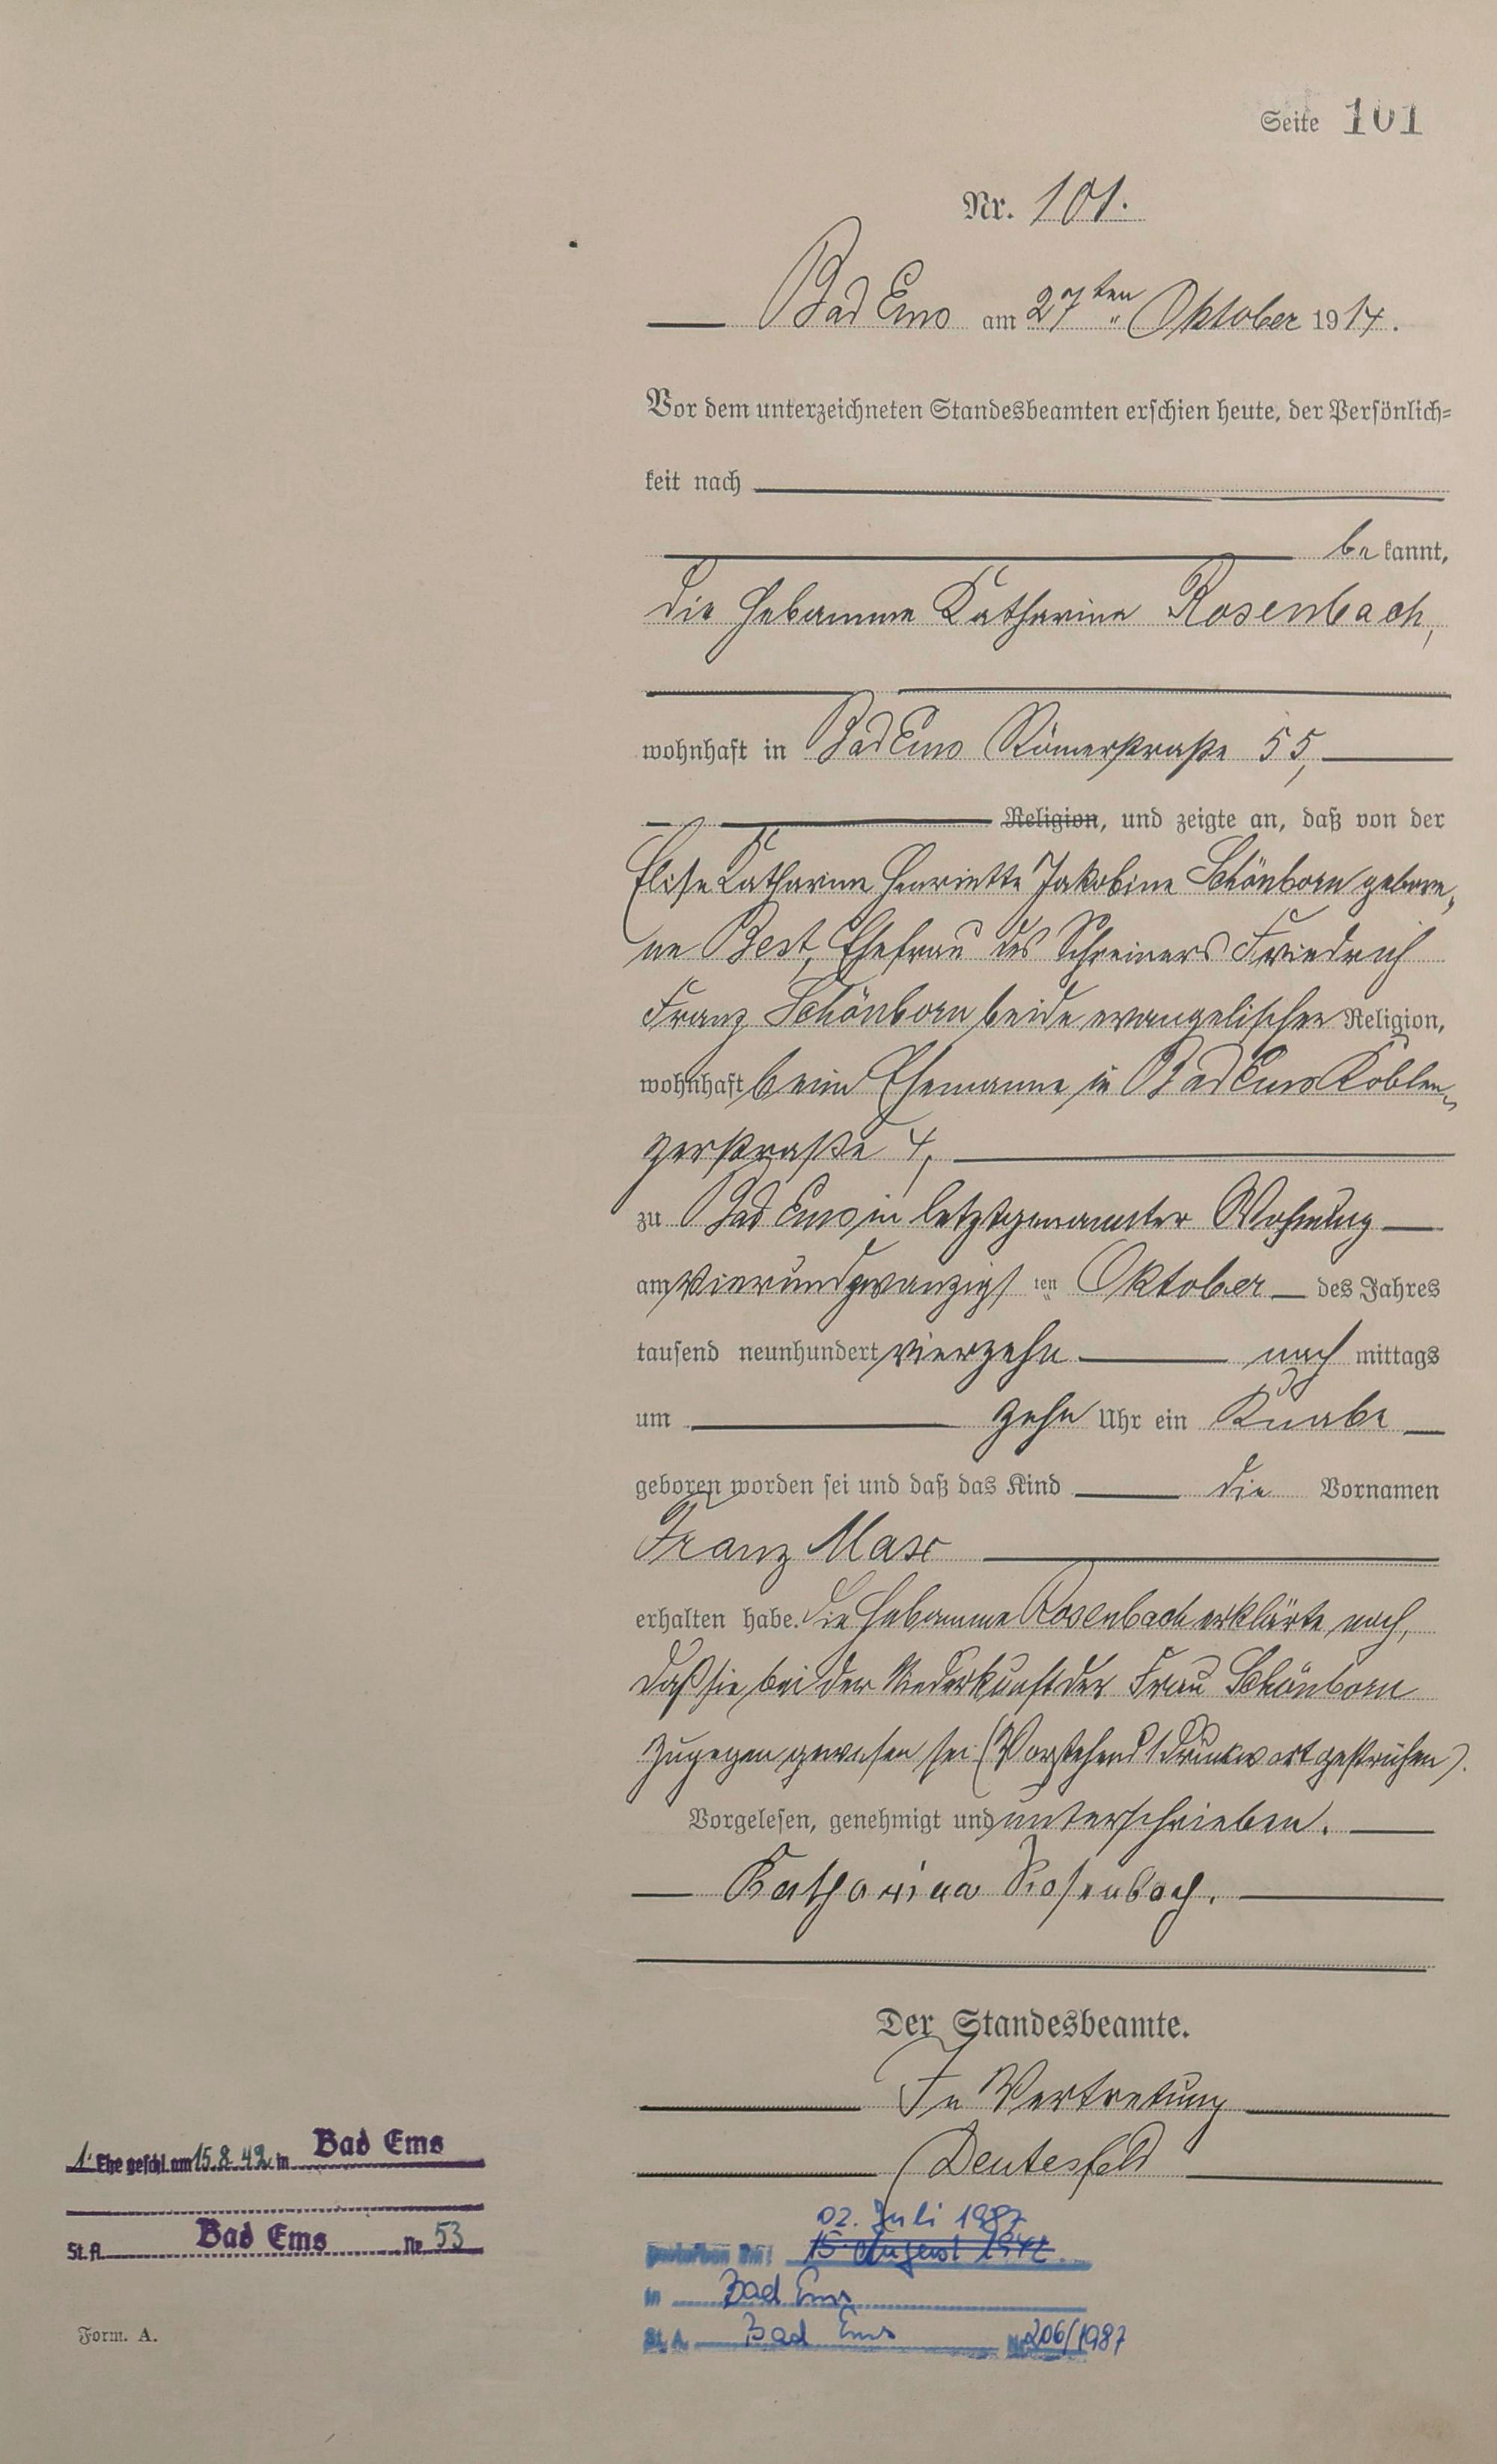 Seite 101
Nr. 101.
Bad Ems am 27ten Oktober 1914.
Vor dem unterzeichneten Standesbeamten erschien heute, der Persönlich=
keit nach
bekannt,
die Hebamme Katharina Rosenbach,
wohnhaft in Bad Ems Römerstraße 55,
Religion, und zeigte an, daß von der
Elise Katharine Henriette Jakobine Schönborn gebore„
ne Best, Ehefrau des Schreiners Friedrich
Franz Schönborn beide evangelischer Religion,
wohnhaft beim Ehemanne in Bad Ems Koblen„
zerstraße 4,
zu Bad Ems in letztgenannter Wohnung
am vierundzwanzigsten Oktober des Jahres
tausend neunhundert vierzehn nach mittags
um zehn Uhr ein Knabe
geboren worden sei und daß das Kind die Vornamen
Franz Max
erhalten habe. Die Hebamme Rosenbach erklärte noch,
daß sie bei der Niederkunft der Frau Schönborn
zugegen gewesen sei (Vorstehend 1 Druckwort gestrichen).
Vorgelesen, genehmigt und unterschrieben.
Katharina Rosenbach.
Der Standesbeamte.
In Vertretung
Deutesfeld
1. Ehe geschl. am 15.8.42 in Bad Ems
St. A. Bad Ems Nr. 53
02. Juli 1987
gestorben am: 15. August 1942
in Bad Ems
St. A. Bad Ems Nr. 206/1987
Form. A.